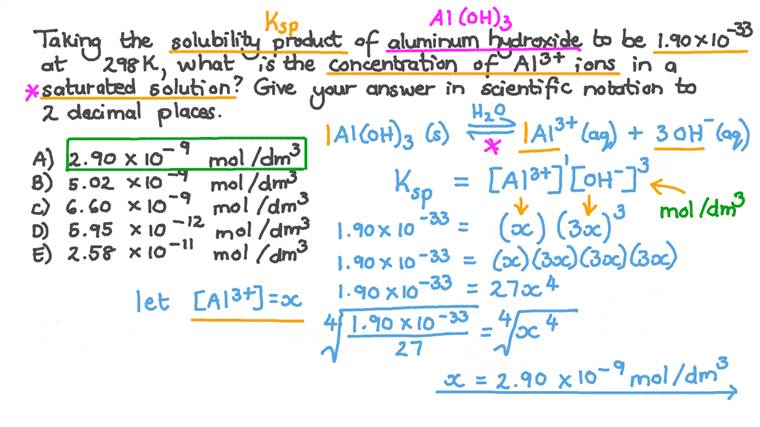 Ksp
Al(OH)₃
Taking the solubility product of aluminum hydroxide to be 1.90×10⁻³³
at 298K, what is the concentration of Al³⁺ ions in a
*saturated solution? Give your answer in scientific notation to
2 decimal places.
A) 2.90 × 10⁻⁹ mol/dm³
B) 5.02 × 10⁻⁹ mol/dm³
C) 6.60 × 10⁻⁹ mol/dm³
D) 5.95 × 10⁻¹² mol/dm³
E) 2.58 × 10⁻¹¹ mol/dm³
let [Al³⁺]=x
H₂O
1Al(OH)₃ (s) ⇌ 1Al³⁺(aq) + 3OH⁻(aq)
*
Ksp = [Al³⁺]¹[OH⁻]³
mol/dm³
1.90×10⁻³³ = (x)(3x)³
1.90×10⁻³³ = (x)(3x)(3x)(3x)
1.90×10⁻³³ = 27x⁴
⁴√(1.90×10⁻³³/27) = ⁴√x⁴
x = 2.90 × 10⁻⁹ mol/dm³